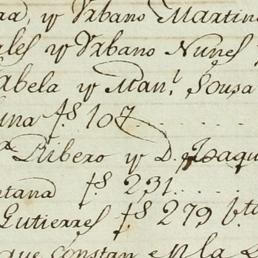 y Urbano Martin
y Urbano Nunes
abela y Man.l Sousa
una fs 107
Ribero y D. Joaqu
ntana fs 231
Gutierres fs 279 bta
que constan en la